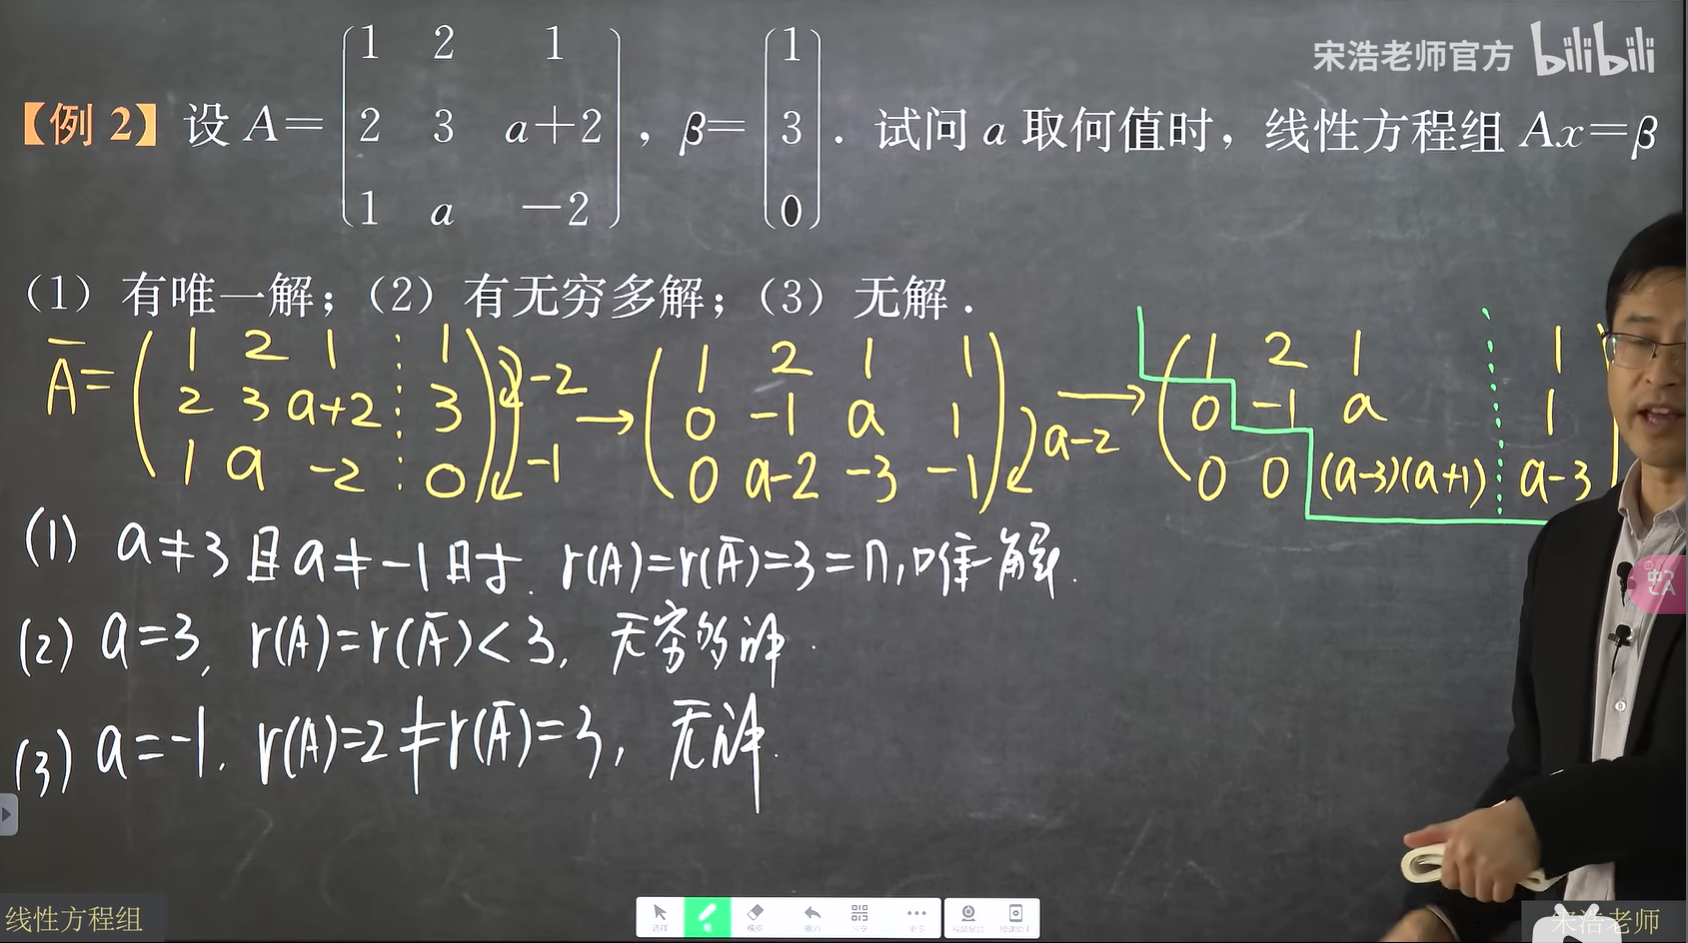 宋浩老师官方 bilibili
【例 2】设 A= (1 2 1; 2 3 a+2; 1 a -2), β= (1; 3; 0). 试问 a 取何值时，线性方程组 Ax=β
（1）有唯一解；（2）有无穷多解；（3）无解.
Ā= (1 2 1 ⋮ 1; 2 3 a+2 ⋮ 3; 1 a -2 ⋮ 0) -2 -1 → (1 2 1 1; 0 -1 a 1; 0 a-2 -3 -1) a-2 → (1 2 1 ⋮ 1; 0 -1 a ⋮ 1; 0 0 (a-3)(a+1) ⋮ a-3
(1) a≠3 且 a≠-1 时. r(A)=r(Ā)=3=n, 唯一解.
(2) a=3, r(A)=r(Ā)<3, 无穷多解.
(3) a=-1. r(A)=2≠r(Ā)=3, 无解.
线性方程组
选择
宋浩老师